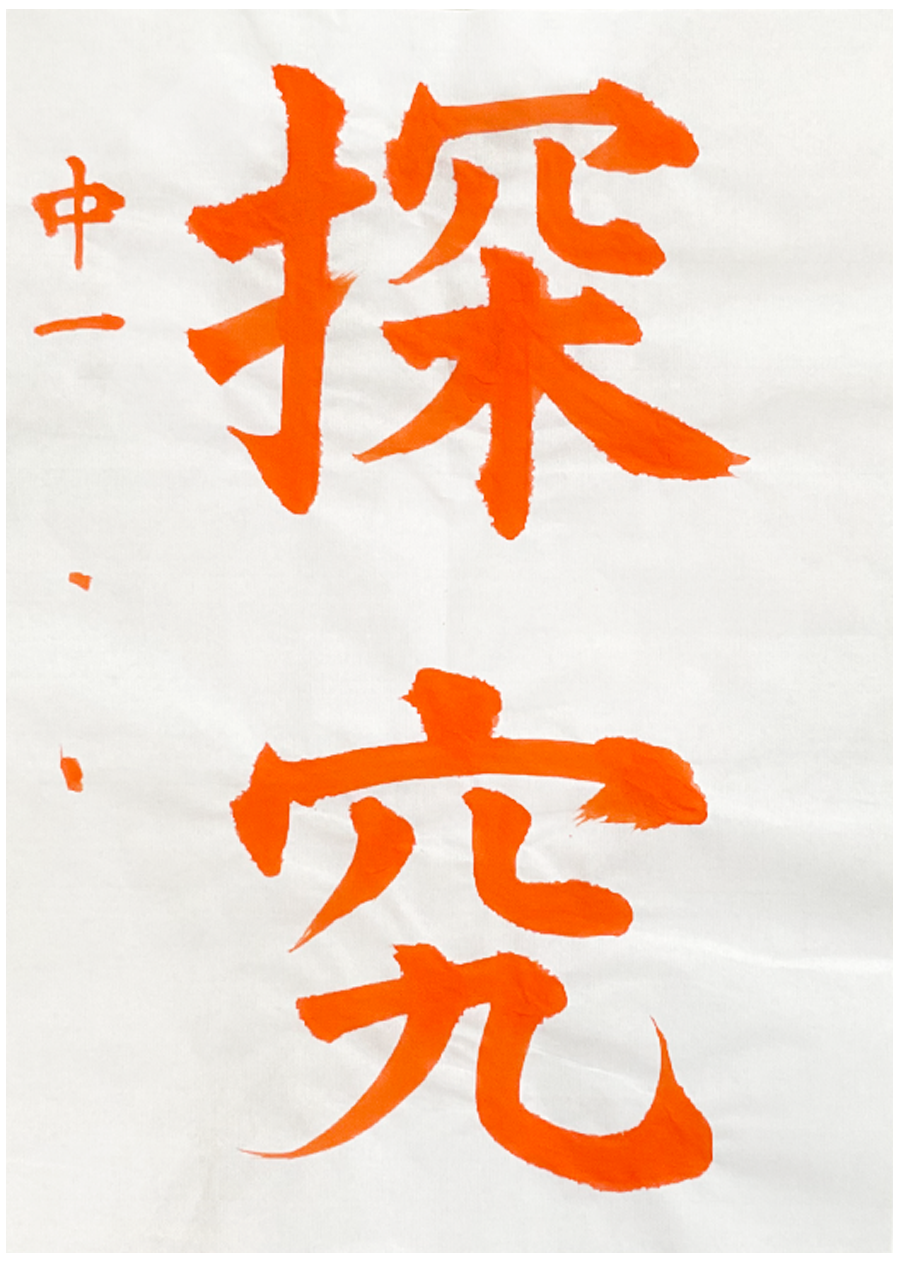 探究
中一